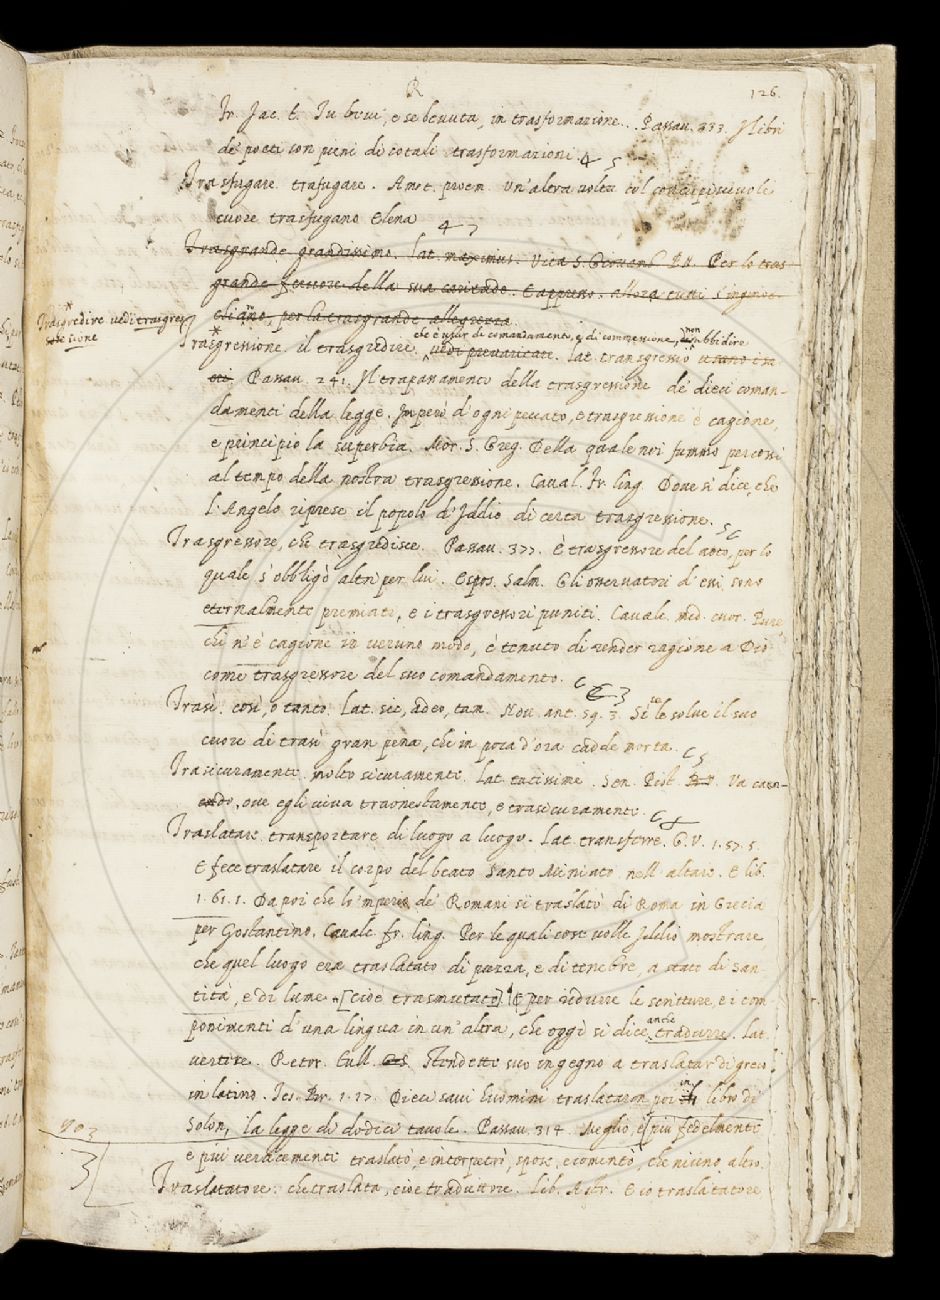 R
126.
Fr. Jac. t. Tu bevi, e se bevuta, in trasformazione. Passav. 333. I libri
de' poeti son pieni di cotali trasformazioni.
Trasfugare. trafugare. Amet. proem. Un'altra volta col concupiscevole
cuore trasfugano Elena
Trasgrande grandissimo. lat. maximus. Vita S. Giovanb. Per lo tras
grande fervore della sua caritade. E appresso. allora tutti s'inginoc-
chiano, per la trasgrande allegrezza.
Trasgredire vedi trasgres
sione
Trasgressione. il trasgredire. che è uscir di comandamento, e di commessione, non ubbidire
vedi prevaricare. lat. transgressio
Passav. 241. Il trapassamento della trasgressione de' dieci coman-
damenti della legge. Imperò d'ogni peccato, e trasgressione è cagione,
e principio la superbia. Mor. S. Greg. Della quale noi fummo percossi
al tempo della nostra trasgressione. Caval. Fr. ling. Dove si dice, che
l'Angelo riprese il popolo d'Iddio di certa trasgressione.
Trasgressore, che trasgredisce. Passav. 377. È trasgressore del voto, per lo
quale s'obbligò altri per lui. Espos. Salm. Gli osservatori d'essi sono
eternalmente premiati, e i trasgressori puniti. Cavalc. med. cuor. Pure
chi n'è cagione in veruno modo, è tenuto di render ragione a Dio
come trasgressore del suo comandamento.
Trasì. così, o tanto. Lat. sic, adeo, tam. Nov. ant. 59. 3. Si le solve il suo
cuore di trasì gran pena, che in poca d'ora cadde morta.
Trasicuramente. molto sicuramente. Lat. tutissime. Sen. Pist. Va caen-
do, ove egli viva traonestamente, e trasicuramente.
Traslatare transportare di luogo a luogo. Lat. transferre. G. V. 1. 57. 5.
E fece traslatare il corpo del beato Santo Miniato nell'altare. E lib.
1. 61. 1. Da poi che lo 'mperio de' Romani si traslatò di Roma in Grecia
per Gostantino. Cavalc. fr. ling. Per le quali cose volle Iddio mostrare,
che quel luogo era traslatato di puzza, e di tenebre, a stato di san-
tità, e di lume [cioè trasmutato] E per ridurre le scritture, e i com-
ponimenti d'una lingua in un'altra, che oggi si dice anche tradurre. Lat.
vertere. Retor. Tull. Stendette suo ingegno a traslatar di greco
in latino. Tes. Br. 1. 17. Dieci savi huomini traslataron poi in libro di
Solon, la legge di dodici tavole. Passav. 314. Meglio, e più fedelmente
e più veracemente traslatò, e interpetrò, spose, e comentò, che niuno altro.
Traslatatore. che traslata, cioè traduttore. Lib. Astr. E io traslatatore